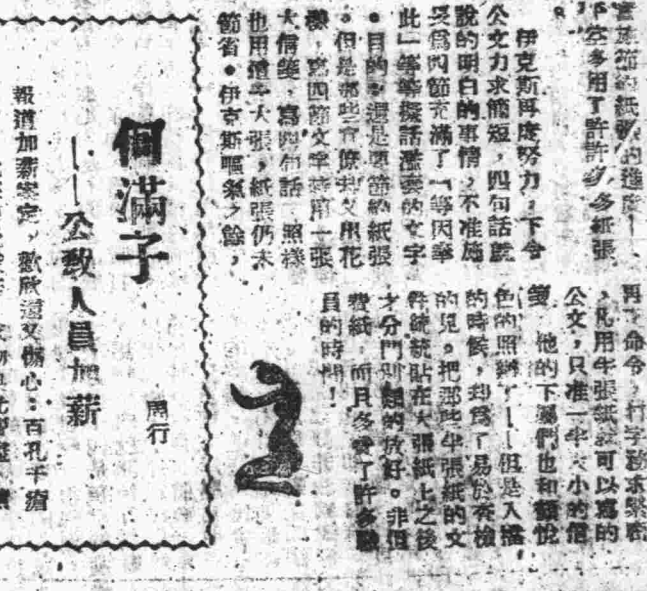 實施節約紙張的進度——
多用了許許多多紙張
。
伊克斯再度努力,下令
公文力求簡短,四句話就
說的明白的事情,不准施
展爲四節充滿了「等因奉
此」等等擬話濫套的文字
。目的,還是要節約紙張
。但是那些官僚們又出花
樣,寫四節文字時用一張
大信箋,寫四句話,照樣
也用這一大張,紙張仍未
節省。伊克斯嘔氣之餘,
再下命令,打字務求緊密
,用半張紙就可以寫的
公文,只准一半大小的信
箋。他的下屬們也和顏悅
色的照辦了——但是入檔
的時候,却爲了易於查檢
的見,把那些半張紙的文
件統統貼在大張紙上之後
才分門別類的放好。非但
費紙,而且多費了許多職
員的時間!
何滿子
——公教人員加薪
開行
報道加薪案定,歡欣還又傷心:百孔千瘡